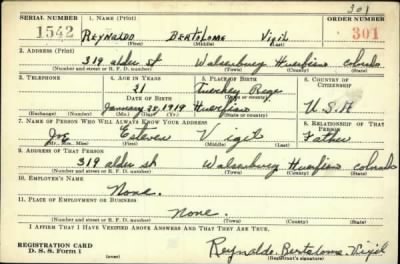 301
SERIAL NUMBER 1. NAME (Print) ORDER NUMBER
1542 REYNALDO BERTALOME Vigil 301
(First) (Middle) (Last)
2. ADDRESS (Print)
319 alder st Walsenburg Huerfano Colorado
(Number and street or R. F. D. number) (Town) (County) (State)
3. TELEPHONE 4. AGE IN YEARS 5. PLACE OF BIRTH 6. COUNTRY OF CITIZENSHIP
21
DATE OF BIRTH (Town or county)
January 28, 1919 Huerfano U.S.A
(Exchange) (No.) (Mo.) (Day) (Yr.) (State or country)
7. NAME OF PERSON WHO WILL ALWAYS KNOW YOUR ADDRESS 8. RELATIONSHIP OF THAT PERSON
Estever Vigil Father
(Mr., Mrs., Miss) (First) (Middle) (Last)
9. ADDRESS OF THAT PERSON
319 alder st Walsenburg Huerfano Colorado
(Number and street or R. F. D. number) (Town) (County) (State)
10. EMPLOYER'S NAME
None.
11. PLACE OF EMPLOYMENT OR BUSINESS
None.
(Number and street or R. F. D. number) (Town) (County) (State)
I AFFIRM THAT I HAVE VERIFIED ABOVE ANSWERS AND THAT THEY ARE TRUE.
REGISTRATION CARD
D. S. S. Form 1 (over) Reynaldo Bertalome Vigil
(Registrant's signature)